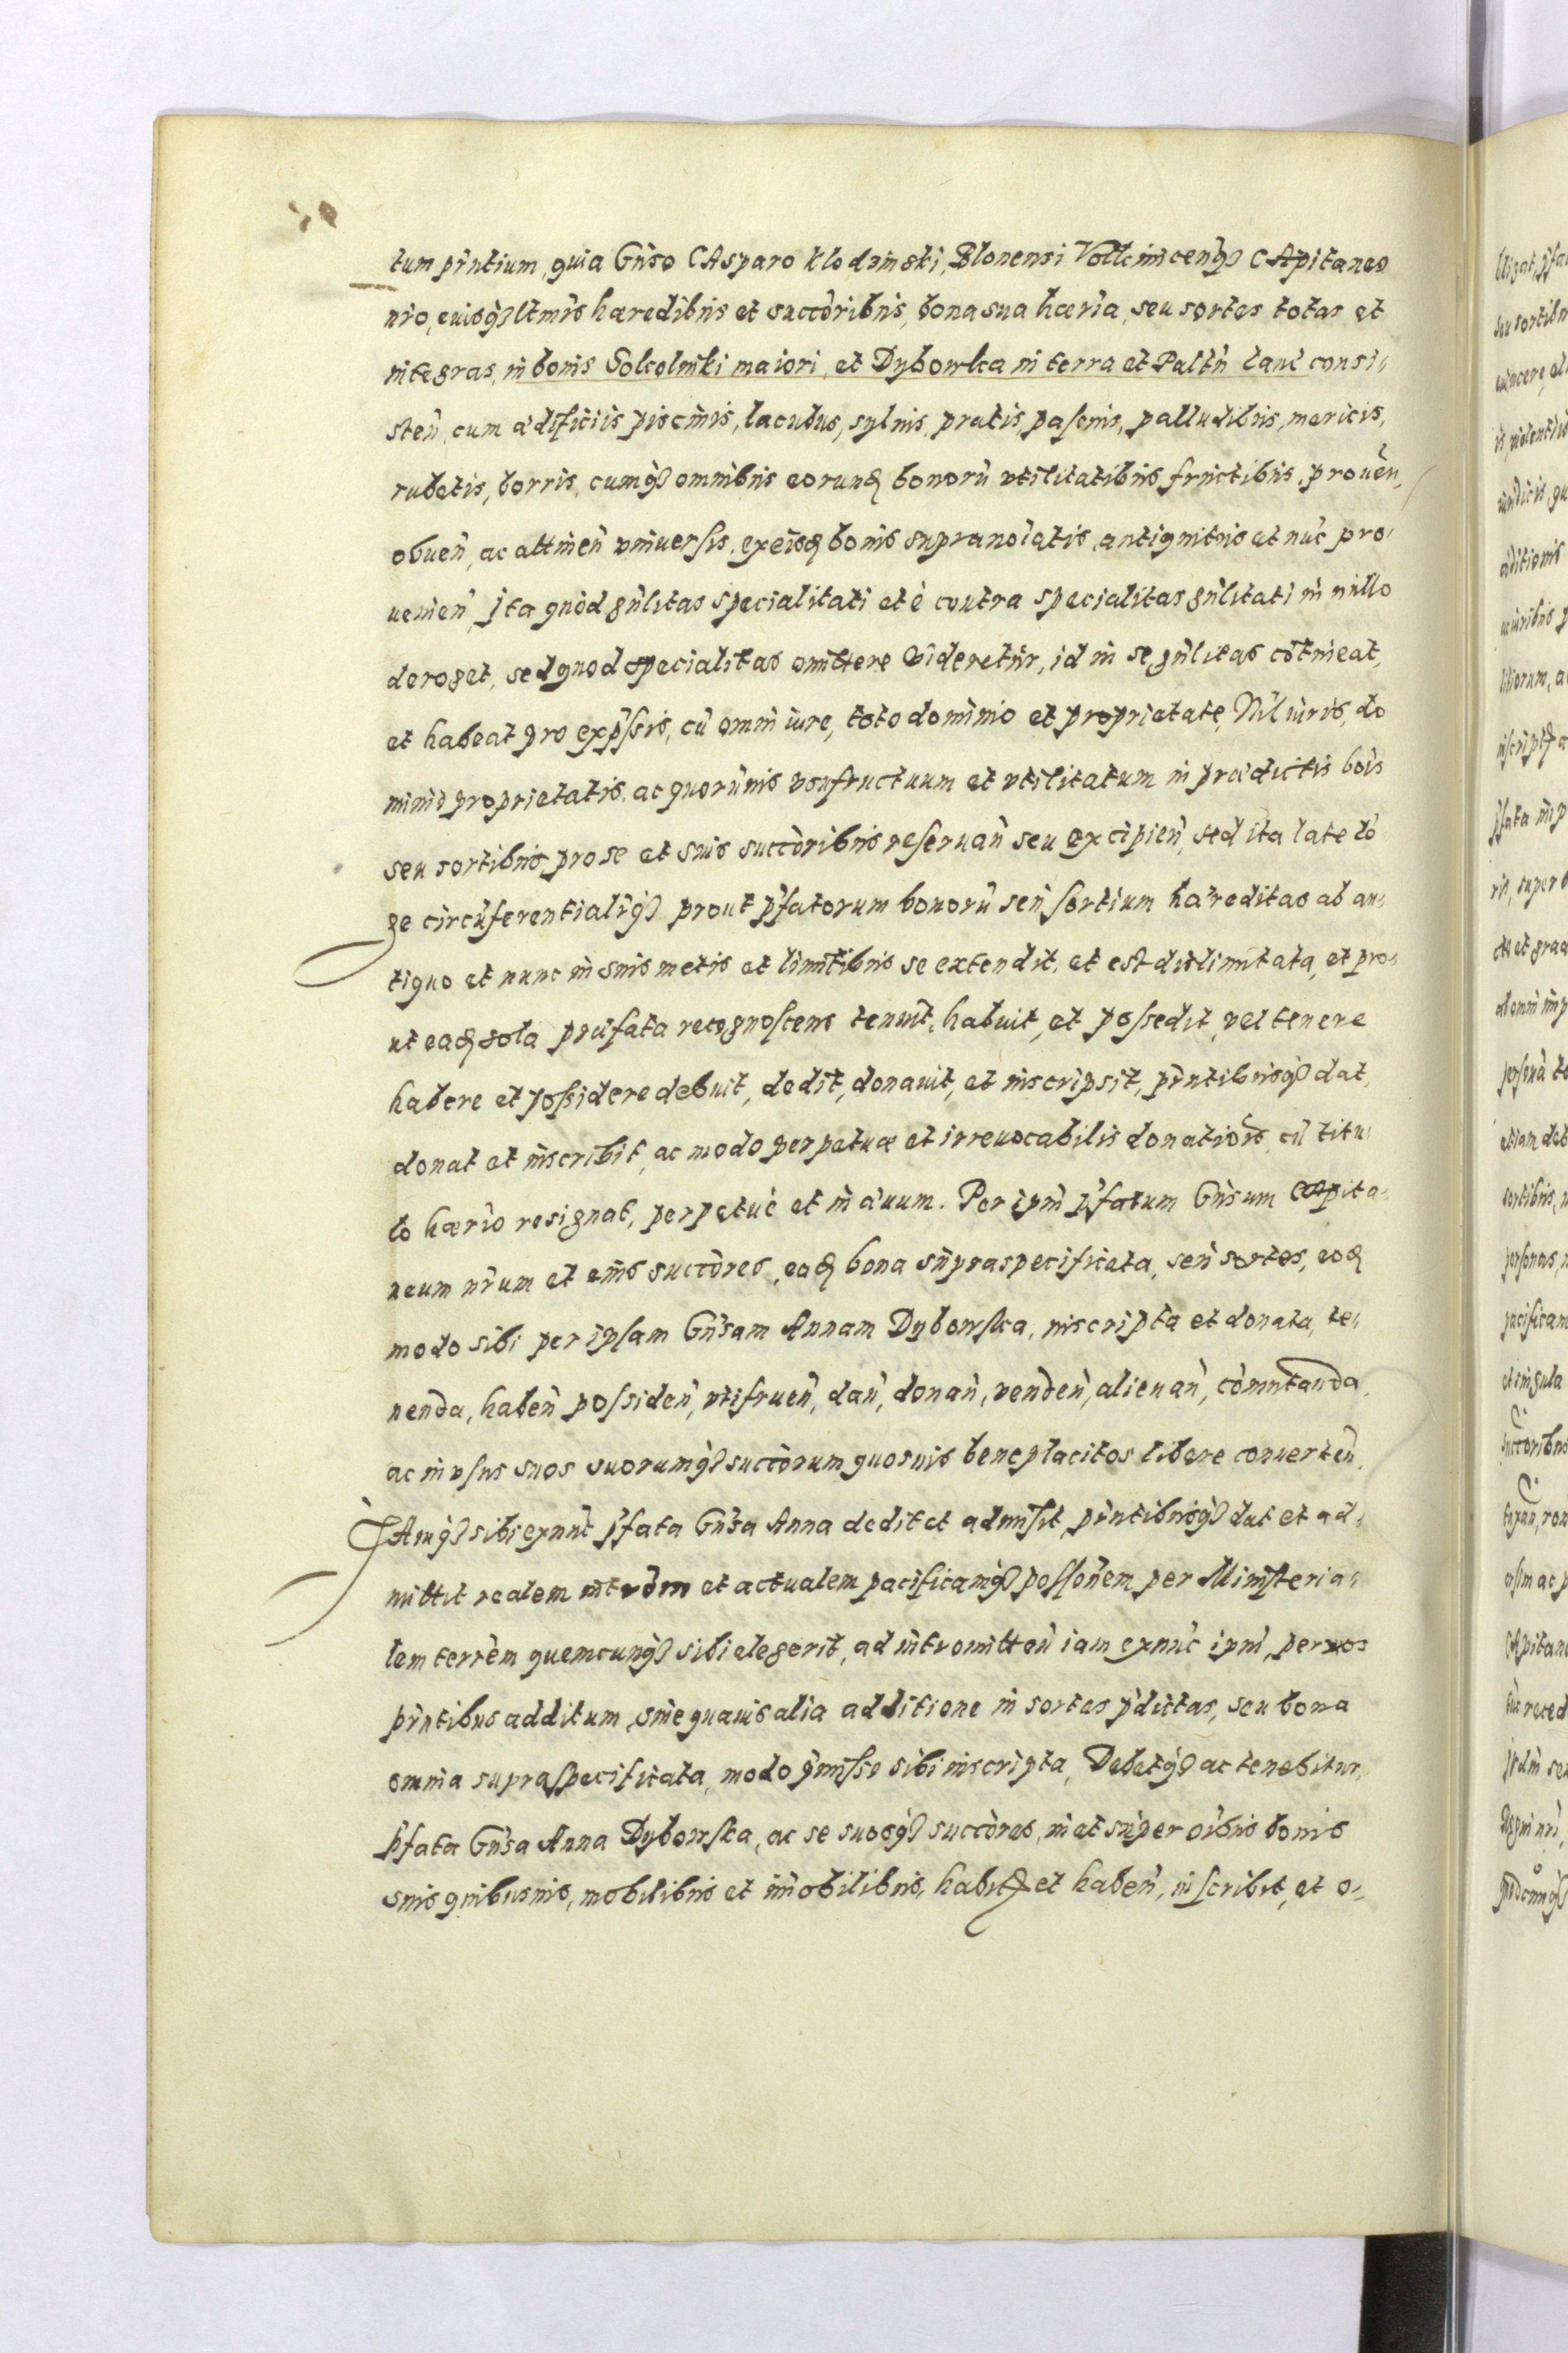 tum pñtium, quia Gñso CAsparo Klodzinski, Blonensi Volcimicenq̃ CApitaneo
nrõ, eiusq̃ ltmis hæredibus et succõribus, bona sua hæria, seu sortes totas et
integras, in bonis Sokolniki maiori, et Dybowka in terra et Paltñ Lanc consi,,
steñ, cum ædificiis piscinis, lacubus, sylvis, pratis, pascuis, palludibus, mericis,
rubetis, borris, cumq̃ omnibus eorund bonorũ vtilitatibus fructibus, proueñ,
obueñ, ac attineñ vniuersis, ex eisd bonis supranoiatis, antiquitus et nũc pro,,
uenieñ, Jta quòd gñlitas specialitati et è contra specialitas gñlitati in nullo
deroget, sed quod specialitas omittere videretur, id in se gñlitas cõtineat,
et habeat pro expssis, cũ omni iure, toto dominio et proprietate, Nil iuris, do
minii proprietatis, ac quorumuis vsufructuum et vtilitatum in prædictis bois
seu sortibus pro se et suis succõribus reseruañ seu excipieñ, sed ita late lõ
ge circũferentialiq̃ prout pfatorum bonorũ seu sortium hæreditas ab an,,
tiquo et nunc in suis metis et limitibus se extendit, et est dislimitata, et pro,,
ut ead sola præfata recognoscens tenuit, habuit, et possedit, vel tenere
habere et possidere debuit, dedit, donauit, et inscripsit, pñtibusq̃ dat,
donat et inscribit, ac modo perpetuæ et irreuocabilis donatiõis, cũ titu,,
lo hærio resignat, perpetuè et in æuum. Per ipm pfatum Gñsum Capita,,
neum nrum et eius succõres, ead bona supraspecificata, seu sortes, eod
modo sibi per ipsam Gñsam Annam Dybowska, inscripta et donata, te,,
nenda, habeñ possideñ, vtifrueñ, dañ, donañ, vendeñ, alienañ, comutanda,
ac in vsus suos suorumq̃ succõrum quosuis beneplacitos libere conuerteñ.
JAmq̃ sibi exnũc pfata Gñsa Anna dedit et admisit, pñtibusq̃ dat et ad,,
mittit realem intrõm et actualem pacificamq̃ possõnem per Ministeria,,
lem terrẽm quemcunq̃ sibi elegerit, ad intromitteñ iam exnũc ipni, per nos
pñtibus additum, sine quauis alia additione in sortes pdictas, seu bona
omnia supraspecificata, modo pmisso sibi inscripta, Debetq̃ ac tenebitur,
pfata Gñsa Anna Dybowska, ac se suosq̃ succõres, in et super oibus bonis
suis quibusuis, mobilibus et imobilibus, habitis et habeñ, inscribit, et o,,